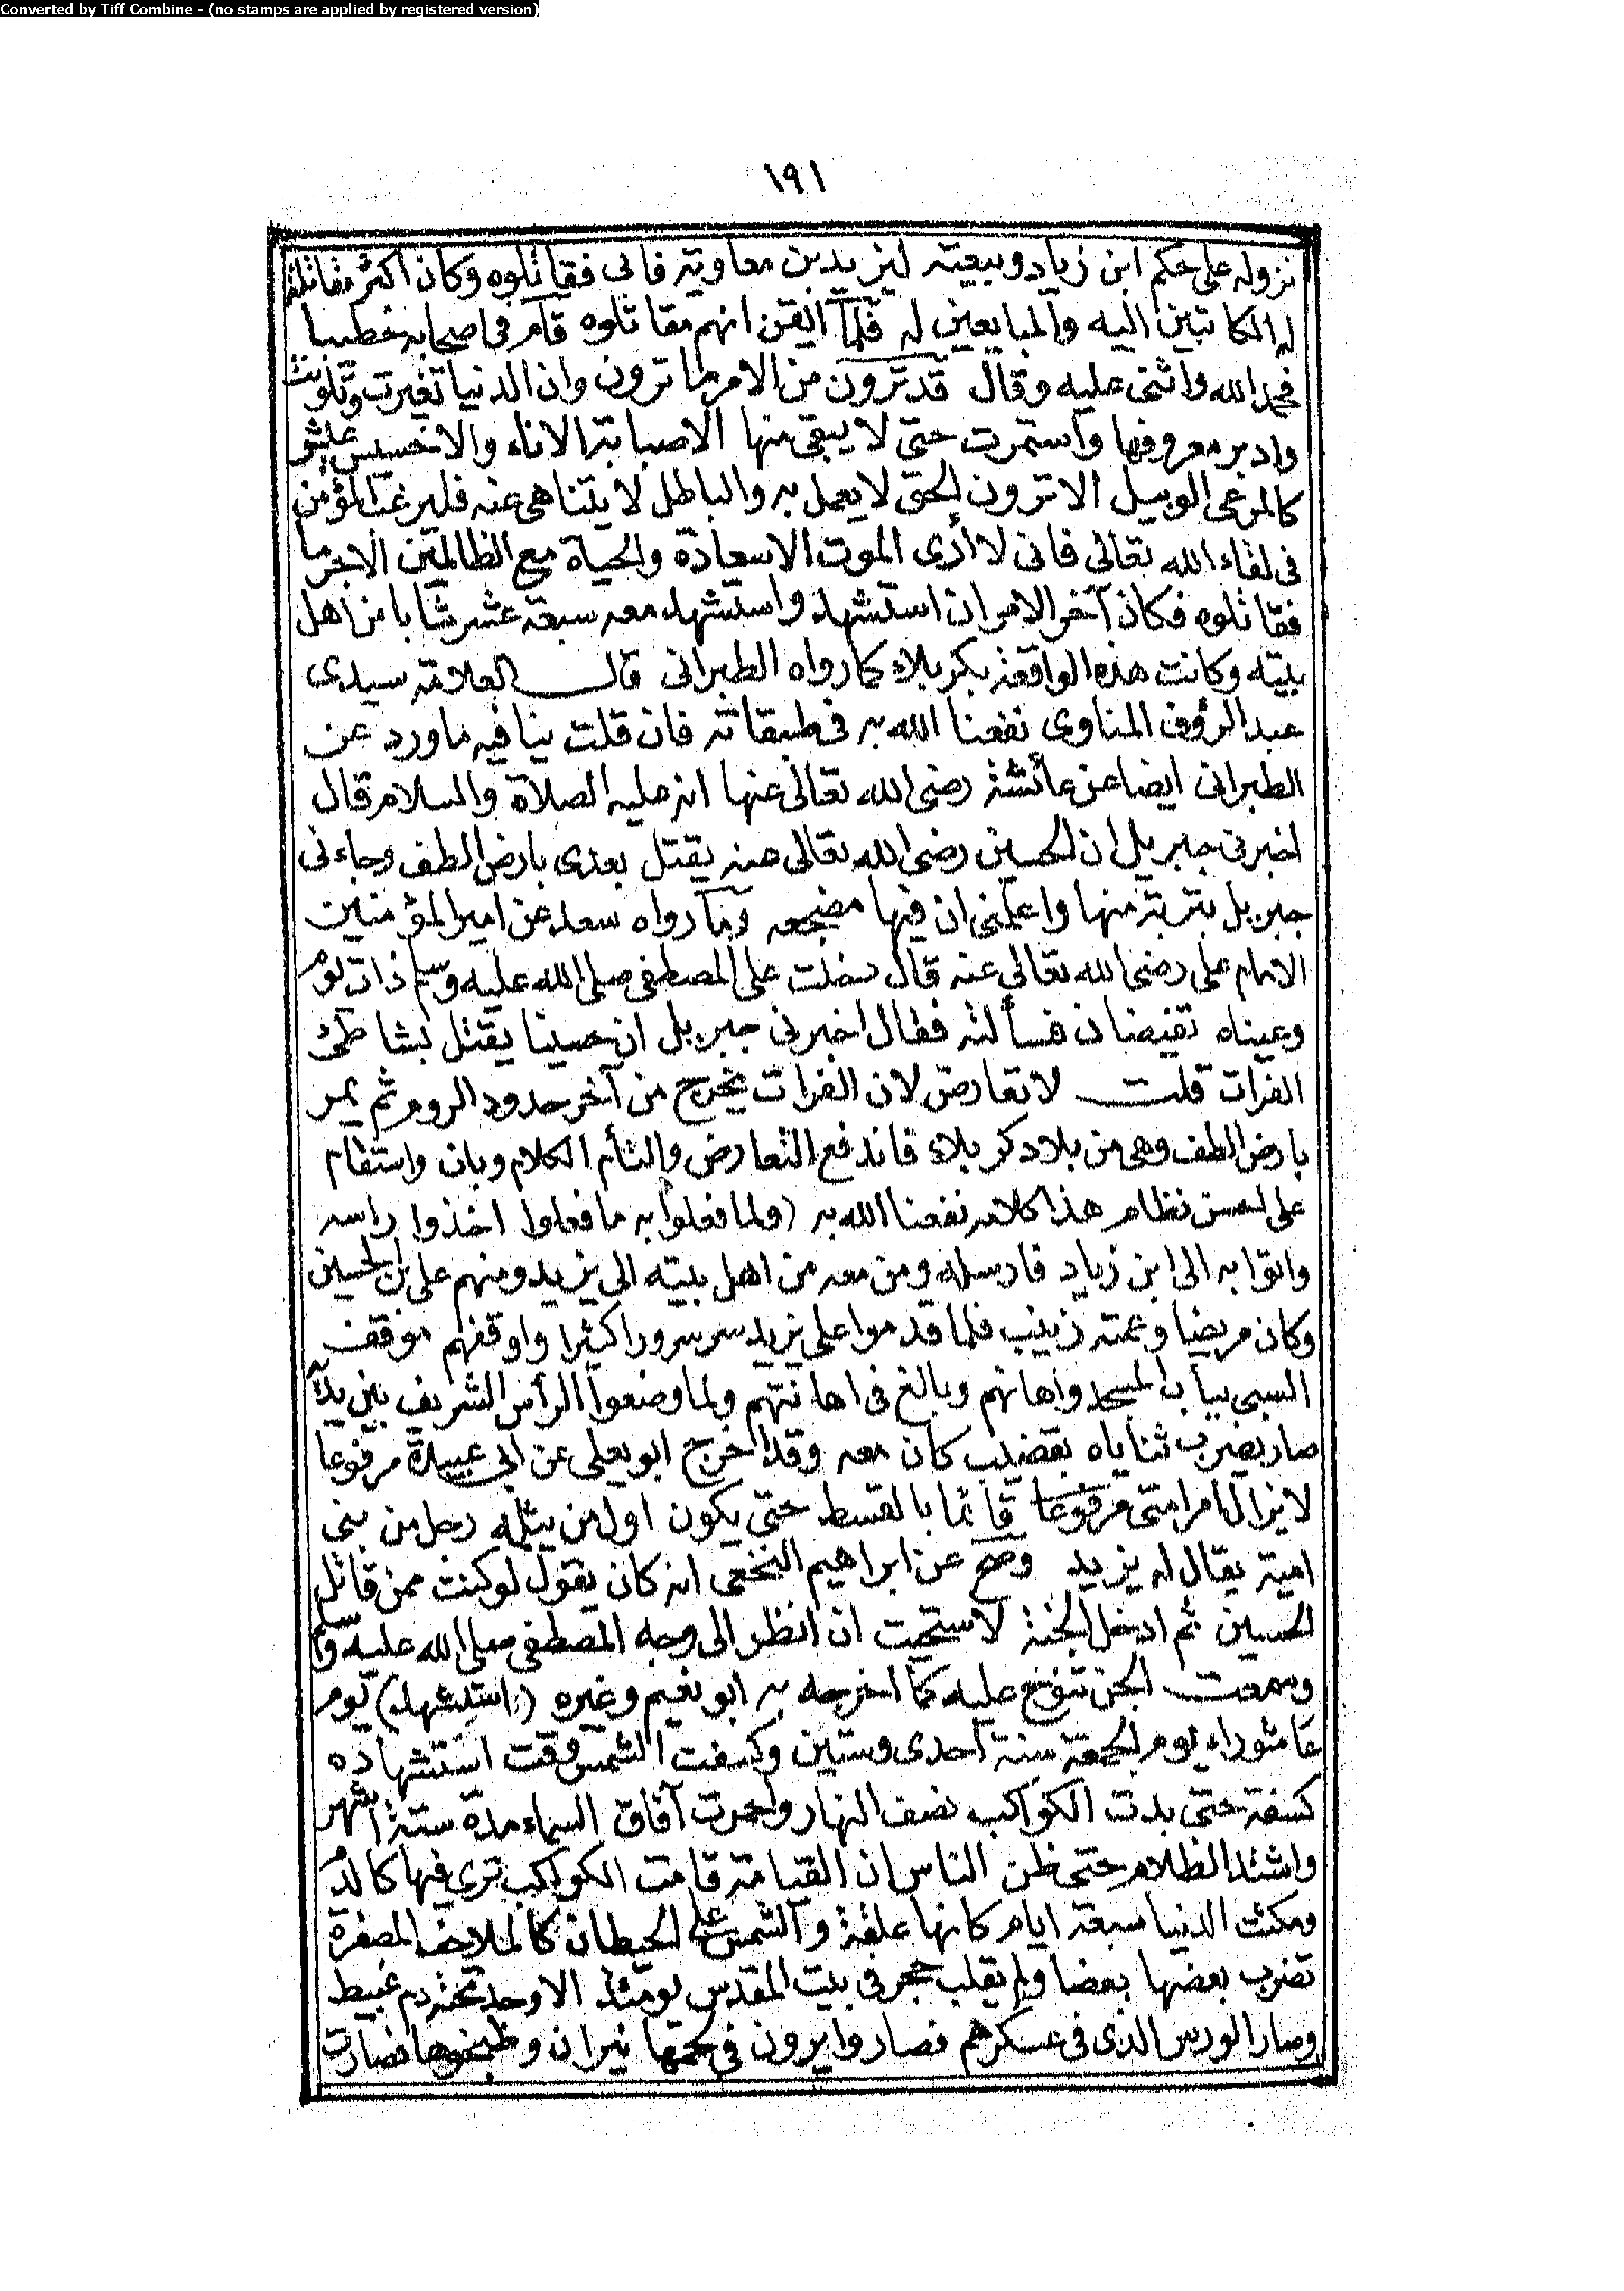 Converted by Tiff Combine - (no stamps are applied by registered version)
١٩١
نزوله على حكم ابن زياد وبيعته ليزيد بن معاوية فابى فقاتلوه وكان اكثر مقاتلة
له المكاتبين اليه والمبايعين له فلما ايقن انهم مقاتلوه قام فى اصحابه خطيبا
فحمد الله واثنى عليه وقال قد ترون من الامر ما ترون وان الدنيا تغيرت وتلونت
وادبر معروفها واستمرت حتى لا يبقى منها الا صبابة الاناء والا خسيس عيش
كالمرعى الوبيل الا ترون الحق لا يعمل به والباطل لا يتناهى عنه فليرغب المؤمن
فى لقاء الله تعالى فانى لا أرى الموت الا سعادة والحياة مع الظالمين الا جرما
فقاتلوه فكان آخر الامر ان استشهد واستشهد معه سبعة عشر شابا من اهل
بيته وكانت هذه الواقعة بكربلاء كما رواه الطبرانى قال العلامة سيدى
عبد الرؤف المناوى نفعنا الله به فى طبقاته فان قلت ينافيه ما ورد عن
الطبرانى ايضا عن عائشة رضى الله تعالى عنها انه عليه الصلاة والسلام قال
اخبرنى جبريل ان الحسين رضى الله تعالى عنه يقتل بعدى بارض الطف وجاءنى
جبريل بتربة منها واعلمنى ان فيها مضجعه وما رواه سعد عن امير المؤمنين
الامام على رضى الله تعالى عنه قال دخلت على المصطفى صلى الله عليه وسلم ذات يوم
وعيناه تفيضان فسألته فقال اخبرنى جبريل ان حسينا يقتل بشاطئ
الفرات قلت لا تعارض لان الفرات يخرج من آخر حدود الروم ثم يمر
بارض الطف وهى من بلاد كربلاء فاندفع التعارض والتأم الكلام وبان واستقام
على احسن نظام هذا كلامه نفعنا الله به (ولما فعلوا به ما فعلوا اخذوا راسه
واتوا به الى ابن زياد فارسله ومن معه من اهل بيته الى يزيد ومنهم على بن الحسين
وكان مريضا وعمته زينب فلما قدموا على يزيد سر سرورا كثيرا واوقفهم موقف
السبى بباب المسجد واهانهم وبالغ فى اهانتهم ولما وضعوا الرأس الشريف بين يديه
صار يضرب ثناياه بقضيب كان معه وقد اخرج ابو يعلى عن ابى عبيدة مرفوعا
لا يزال امر امتى مرفوعا قائما بالقسط حتى يكون اول من يثلمه رجل من بنى
امية يقال له يزيد وصح عن ابراهيم النخعى انه كان يقول لو كنت ممن قاتل
الحسين ثم ادخل الجنة لاستحيت ان انظر الى وجه المصطفى صلى الله عليه وسلم
وسمعت الجن تنوح عليه كما اخرجه به ابو نعيم وغيره (استشهد) يوم
عاشوراء يوم الجمعة سنة احدى وستين وكسفت الشمس وقت استشهاده
كسفة حتى بدت الكواكب نصف النهار واحمرت آفاق السماء مدة ستة اشهر
واشتد الظلام حتى ظن الناس ان القيامة قامت الكواكب ترى فيها كالدم
ومكثت الدنيا سبعة ايام كانها علقة والشمس على الحيطان كالملاحف المصفرة
تضرب بعضها بعضا ولم يقلب حجر فى بيت المقدس يومئذ الا وجد تحته دم عبيط
وصار الورس الذى فى عسكرهم فصاروا يرون فى لحمها نيران وطبخوها فصارت